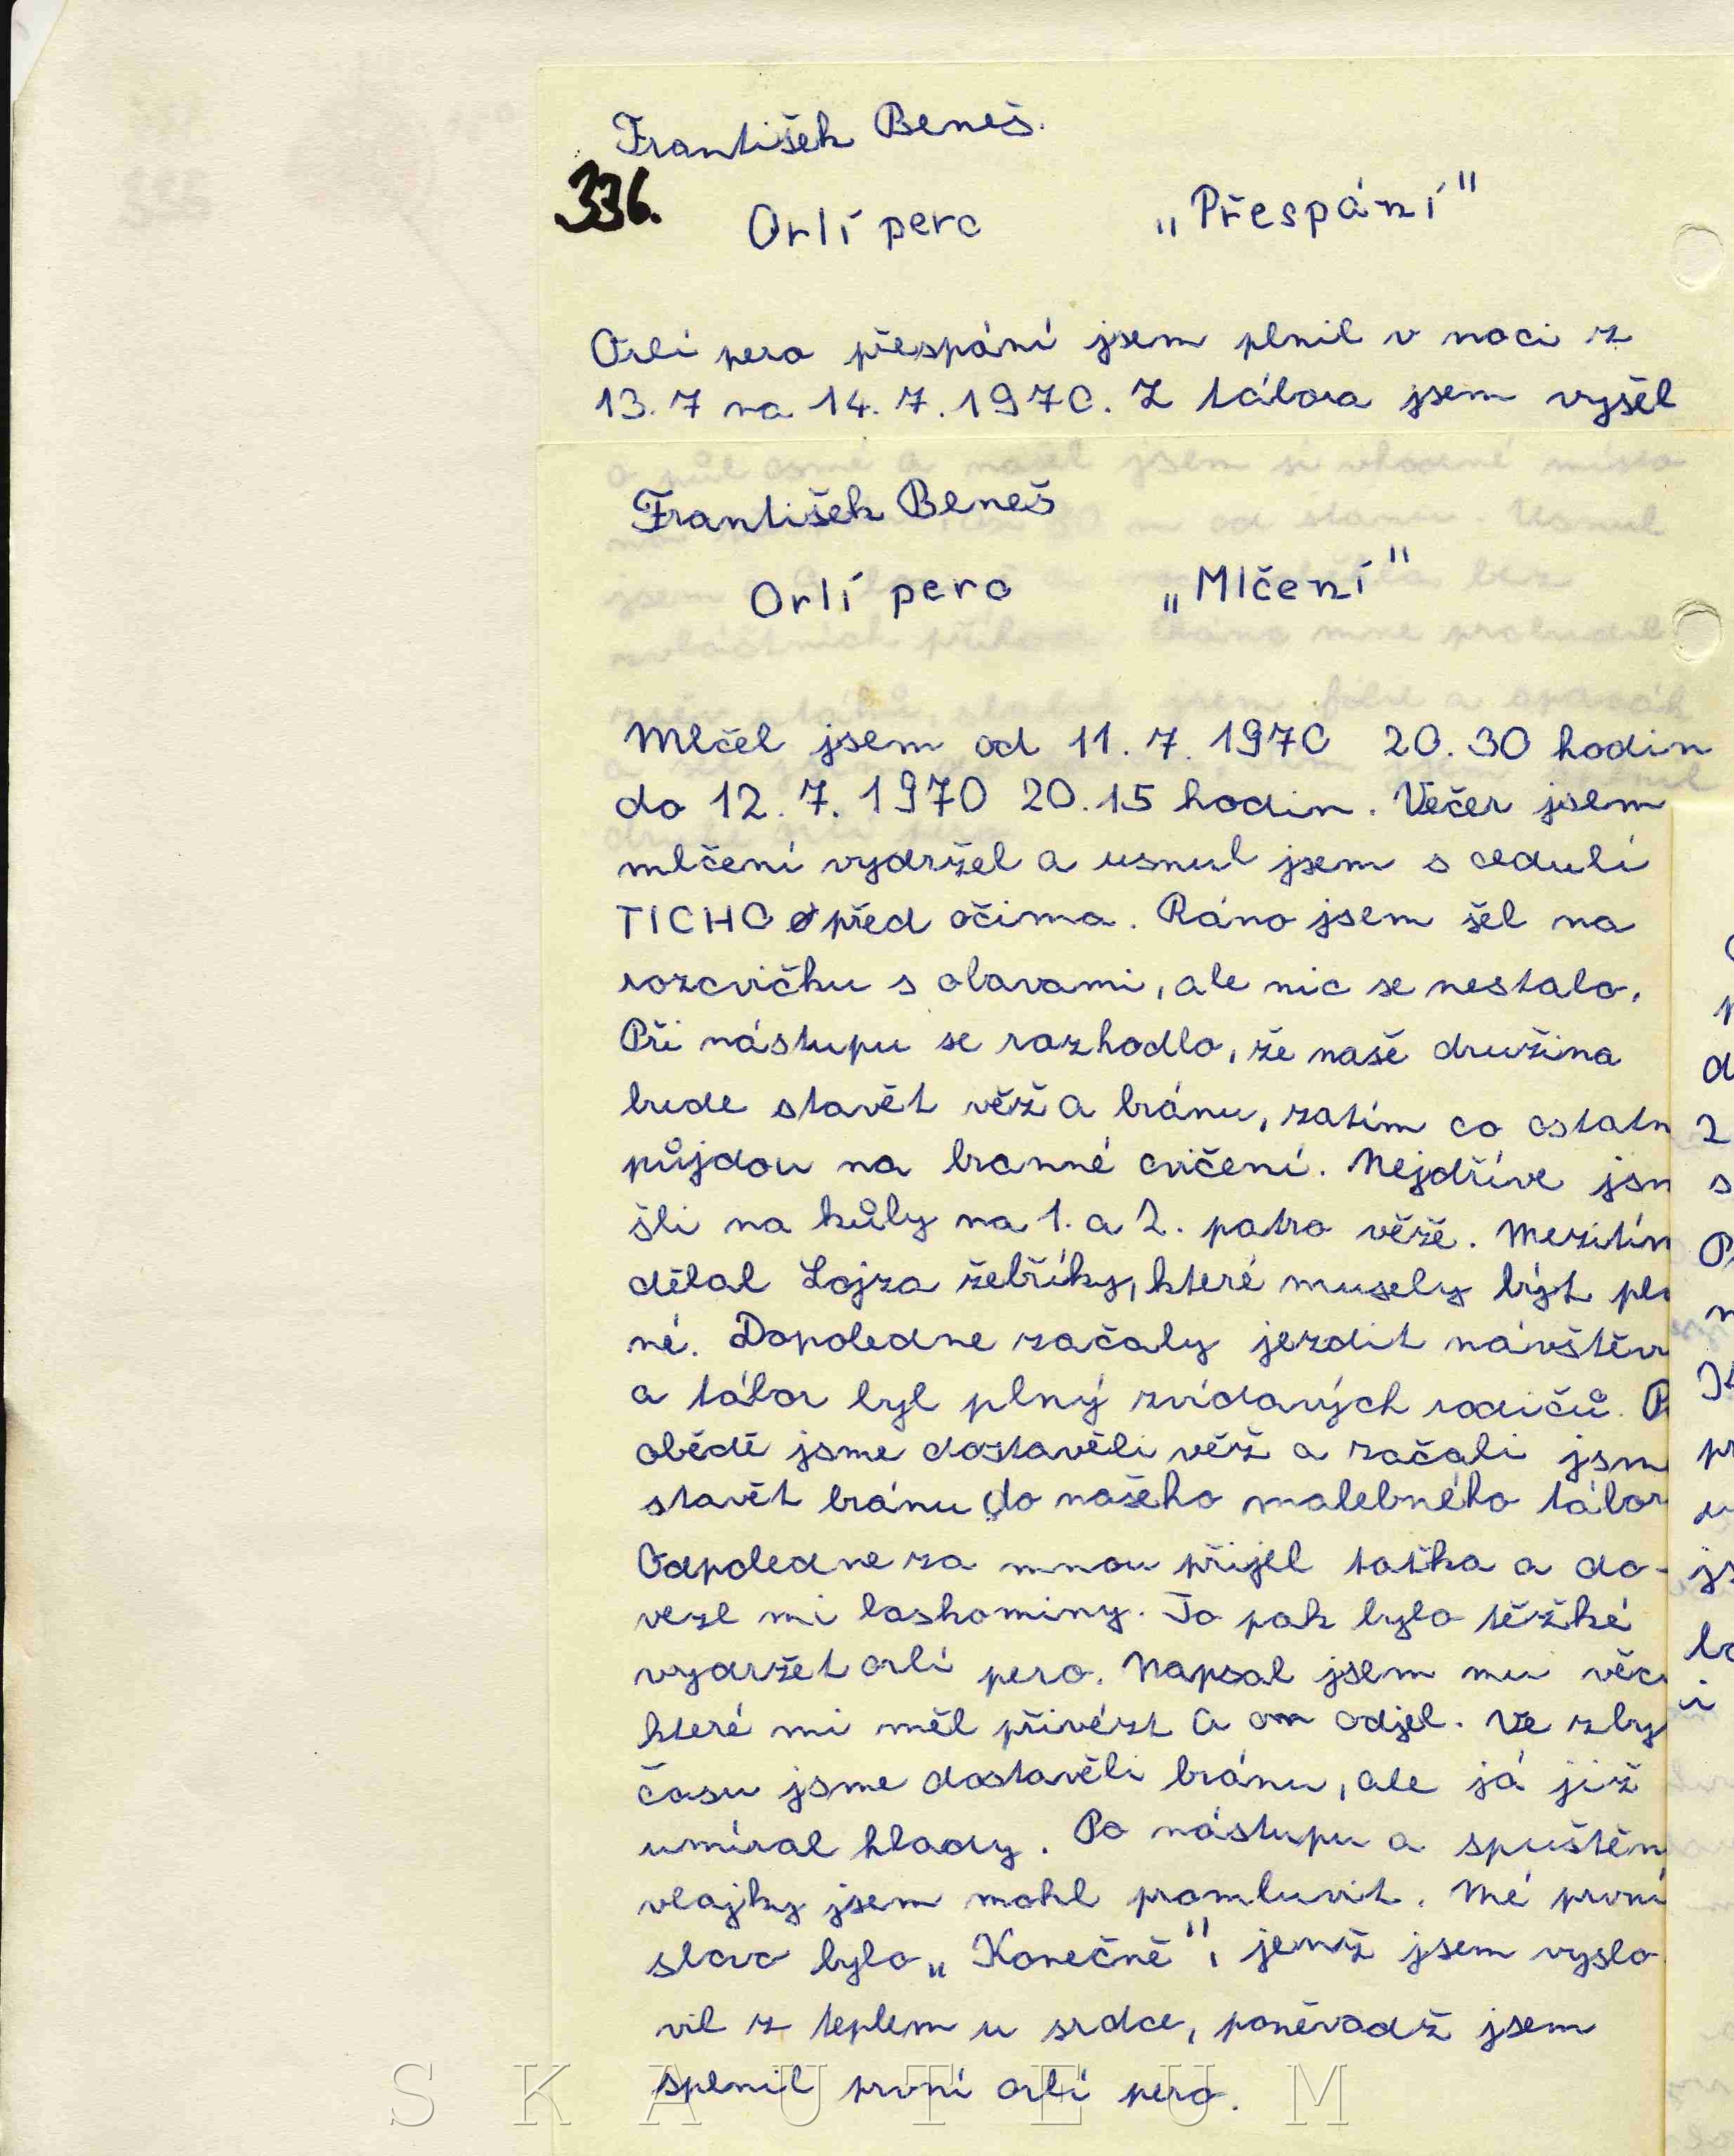 František Beneš.
336.
Orlí pero „Přespání"
Orlí pero přespání jsem plnil v noci z
13.7 na 14.7.1970. Z tábora jsem vyšel
František Beneš
Orlí pero „Mlčení"
Mlčel jsem od 11.7.1970 20.30 hodin
do 12.7.1970 20.15 hodin. Večer jsem
mlčení vydržel a usnul jsem s cedulí
TICHO před očima. Ráno jsem šel na
rozcvičku s obavami, ale nic se nestalo.
Při nástupu se rozhodlo, že naše družina
bude stavět věž a bránu, zatím co ostatn
půjdou na branné cvičení. Nejdříve jsm
šli na kůly na 1. a 2. patro věže. Mezitím
dělal Lojza žebříky, které musely být
né. Dopoledne začaly jezdit návštěv
a tábor byl plný zvídavých rodičů. P
obědě jsme dostavěli věž a začali jsm
stavět bránu do našeho malebného tábor
Odpoledne za mnou přijel taťka a do-
vezl mi laskominy. To pak bylo těžké
vydržet orlí pero. Napsal jsem mu věc
které mi měl přivézt a on odjel. Ve zby
času jsme dostavěli bránu, ale já již
umíral hlady. Po nástupu a spuštěn
vlajky jsem mohl promluvit. Mé první
slovo bylo „Konečně", jenž jsem vyslo
vil z teplem u srdce, poněvadž jsem
splnil první orlí pero.
SKAUTEUM